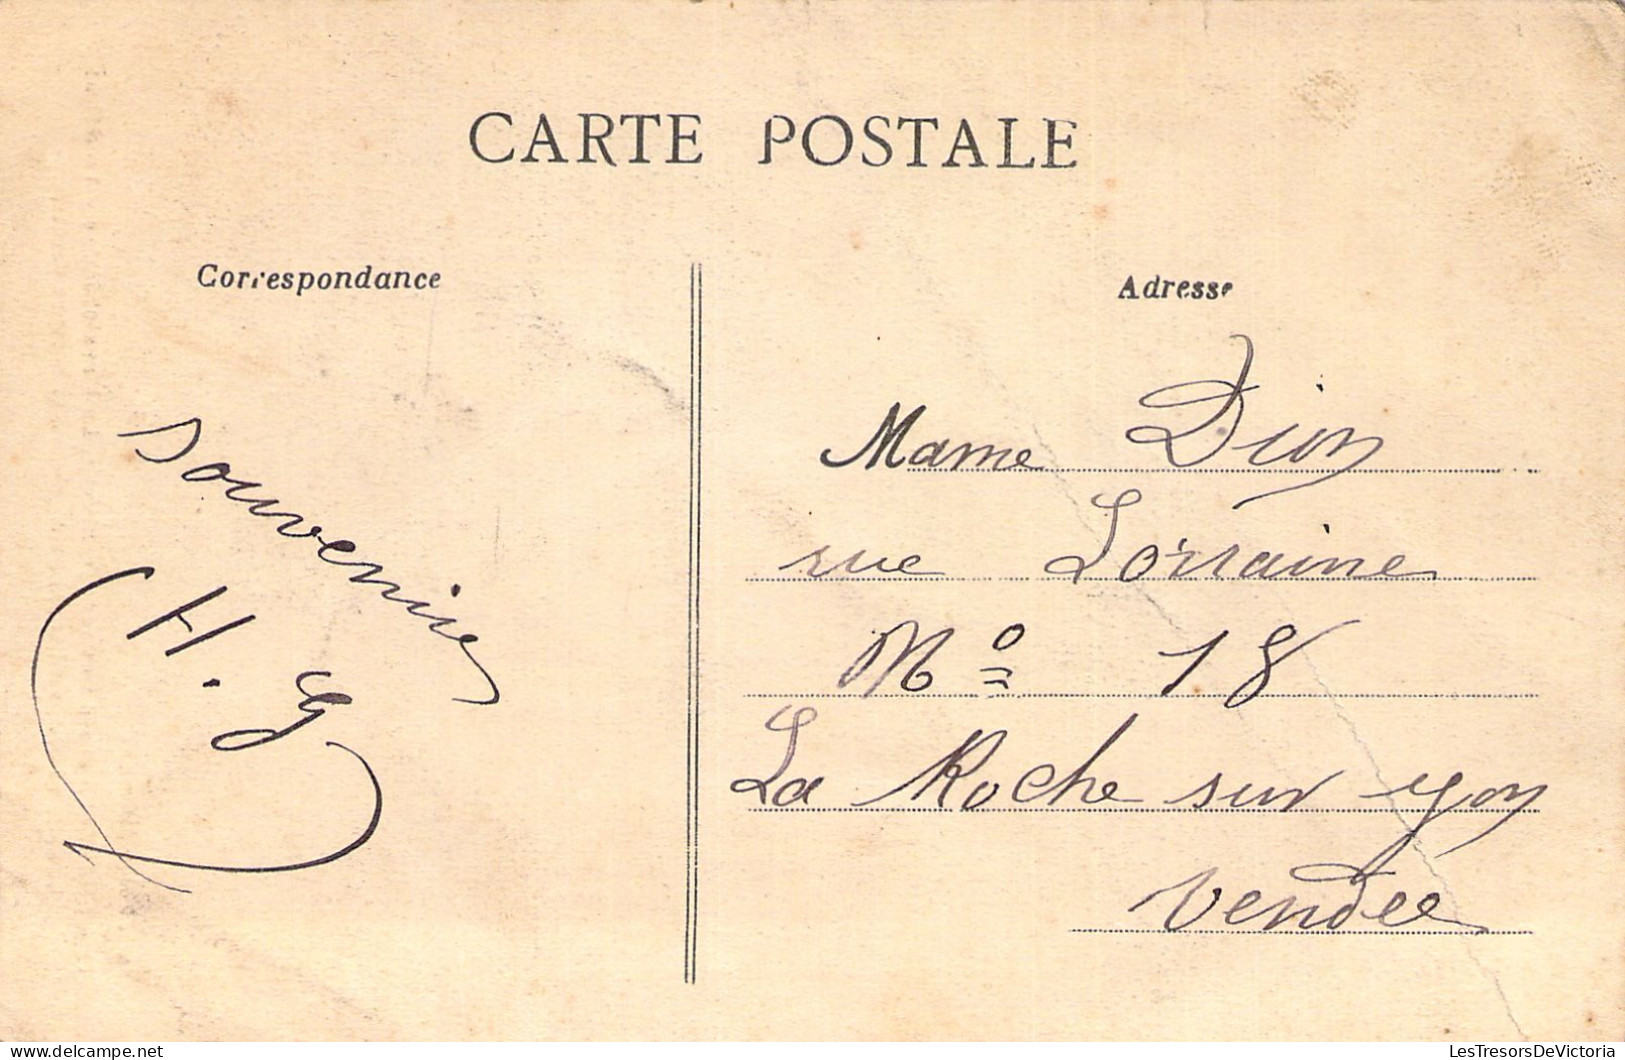 CARTE POSTALE
Correspondance
souvenir
H. G
Adresse
Mame Dion
rue Lorraine
No 18
La Roche sur yon
vendee
LesTresorsDeVictoria